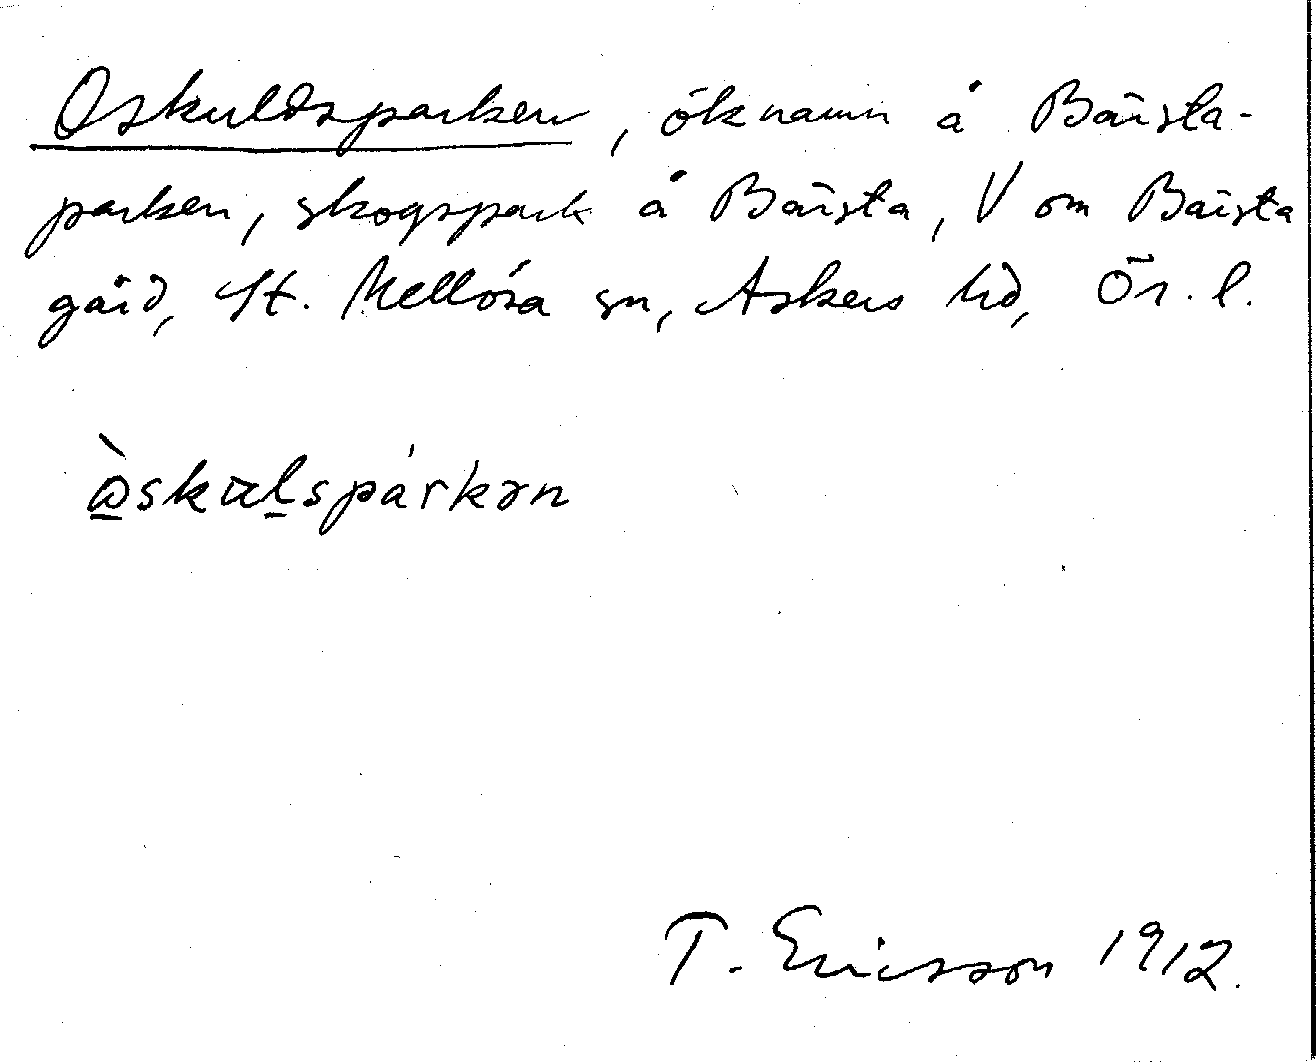 Oskuldsparken, öknamn å Bärsta-
parken, skogspark å Bärsta, V om Bärsta
gård, St. Mellösa sn, Askers hd, Ör. l.
T. Ericsson 1912.